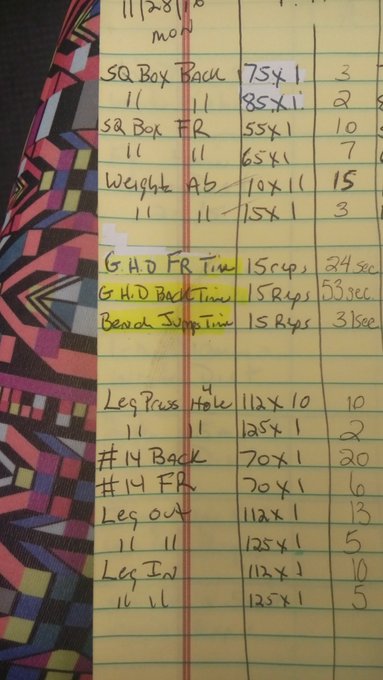 11/28/16
MON
SQ Box BACK 75x1 3
" " 85x1 2
SQ Box FR 55x1 10
" " 65x1 7
Weight Ab 10x11 15
" " 15x1 3
G.H.D FR Time 15 reps 24 sec
G.H.D BACK Time 15 Reps 53 sec.
Bench Jumps Time 15 Reps 31 sec
Leg Press 4 Hole 112x10 10
" " 125x1 2
#14 BACK 70x1 20
#14 FR 70x1 6
Leg out 112x1 13
" " 125x1 5
Leg IN 112x1 10
" " 125x1 5